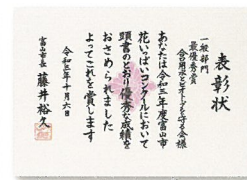 表彰状
一般部門
最優秀賞
舎川用水とビオトープを守る会様
あなたは令和三年度富山市
花いっぱいコンクールにおいて
頭書のとおり優秀な成績を
おさめられました
よってこれを賞します
令和三年十月六日
富山市長 藤井裕久